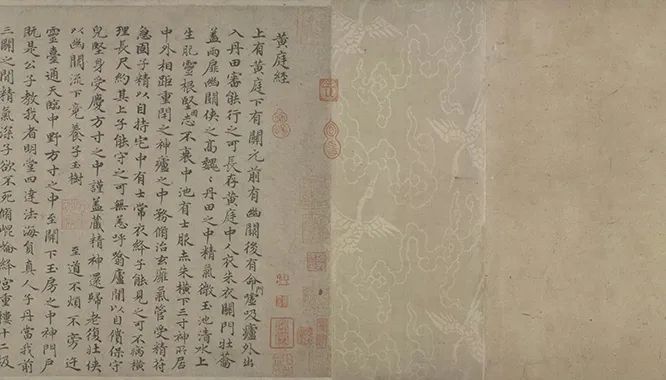 黃庭経
上有黄庭下有關元前有幽關後有命門噓吸廬外出
入丹田審能行之可長存黄庭中人衣朱衣關門壮籥
盖兩扉幽關侠之高巍〻丹田之中精氣微玉池清水上
生肥靈根堅固志不衰中池有士服赤朱横下三寸神所居
中外相距重閇之神廬之中務脩治玄廱氣管受精符
急固子精以自持宅中有士常衣絳子能見之可不病横
理長尺約其上子能守之可無恙呼翕廬間以自償保守
皃堅身受慶方寸之中謹盖藏精神還歸老復壮侠
以幽關流下竟養子玉樹 至道不煩不旁迕
靈臺通天臨中野方寸之中至關下玉房之中神門戶
既是公子教我者明堂四達法海負真人子丹當我前
三關之間精氣深子欲不死脩崐崘絳宫重樓十二級